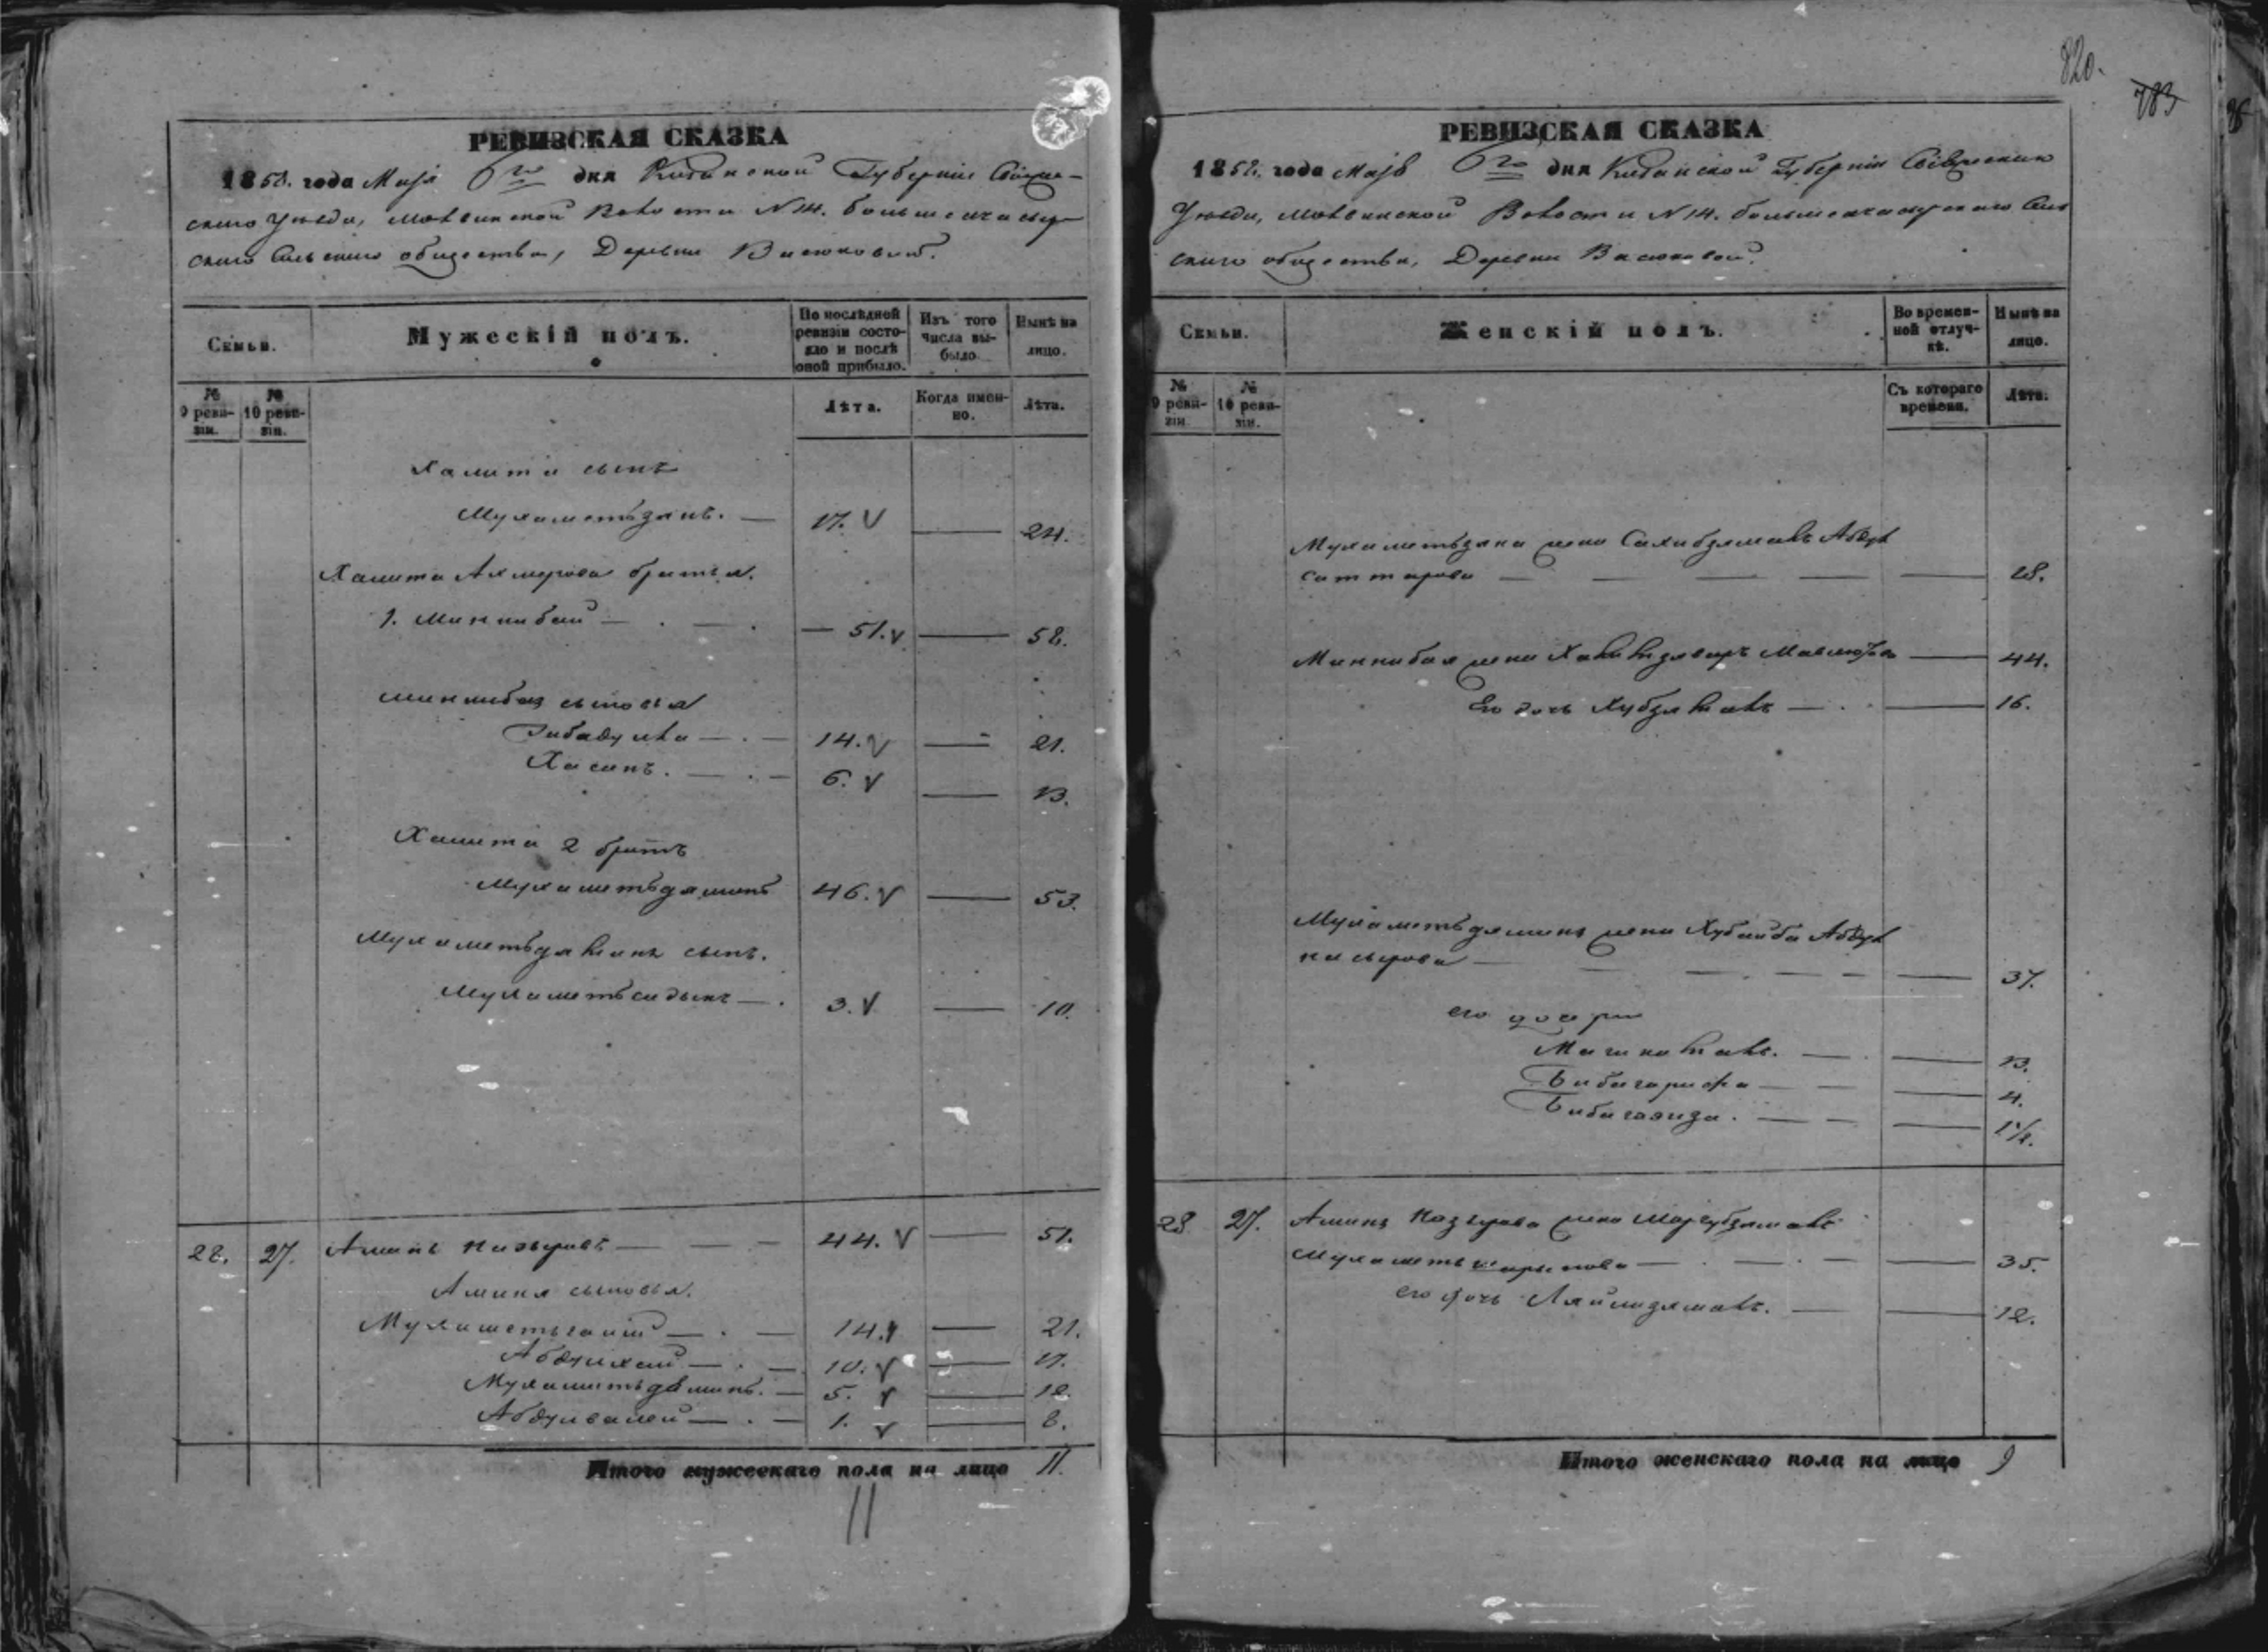 820.
783
РЕВИЗСКАЯ СКАЗКА
1858. года Маія 6го дня Казанской Губерніи Свіяж-
скаго Уѣзда, Волости N 14. больше
скаго Сельскаго общества, Деревни Васюковой.
Семьи.
Мужескій полъ.
По послѣдней ревизіи состояло и послѣ оной прибыло.
Изъ того числа выбыло.
Нынѣ на лицо.
№ 9 ревизіи.
№ 10 ревизіи.
Лѣта.
Когда именно.
Лѣта.
Хамита сынъ
Мухаметьзянъ. — 17. V — 24.
Хамита Ахмерова братья.
1. Миннибай — 51. V — 58.
Миннибая сыновья
Гибадулла — 14. V — 21.
Хасанъ. — 6. V — 13.
Хамита 2 братъ
Мухаметьзяминъ 46. V — 53.
Мухаметьзямина сынъ.
Мухаметьсадыкъ — 3. V — 10.
28. 27. Аминъ Назыровъ — 44. V — 51.
Амина сыновья.
Мухаметьгалій — 14. V — 21.
Абдулхай — 10. V — 17.
Мухаметьзяминъ. — 5. V — 12.
Абдулвалей — 1. V — 8.
Итого мужескаго пола на лицо 11.
11
РЕВИЗСКАЯ СКАЗКА
1858. года Маія 6го дня Казанской Губерніи Свіяжскаго
Уѣзда, Волости N 14. Сель
скаго общества, Деревни Васюковой.
Семьи.
Женскій полъ.
Во временной отлучкѣ.
Нынѣ на лицо.
№ 9 ревизіи.
№ 10 ревизіи.
Съ котораго времени.
Лѣта.
Мухаметьзяна жена Сахибзямалъ Абдул
саттарова — 28.
Миннибая жена Мавлютова — 44.
Его дочь Хубзямалъ — 16.
Мухаметьзямина жена Хубайба Абдул
насырова — 37.
его дочери
— 13.
Бибигарифа — 4.
— 1 1/2.
28 27. Амина Назырова жена
Мухаметь — 35.
его дочь Ляйлизямалъ. — 12.
Итого женскаго пола на лицо 9